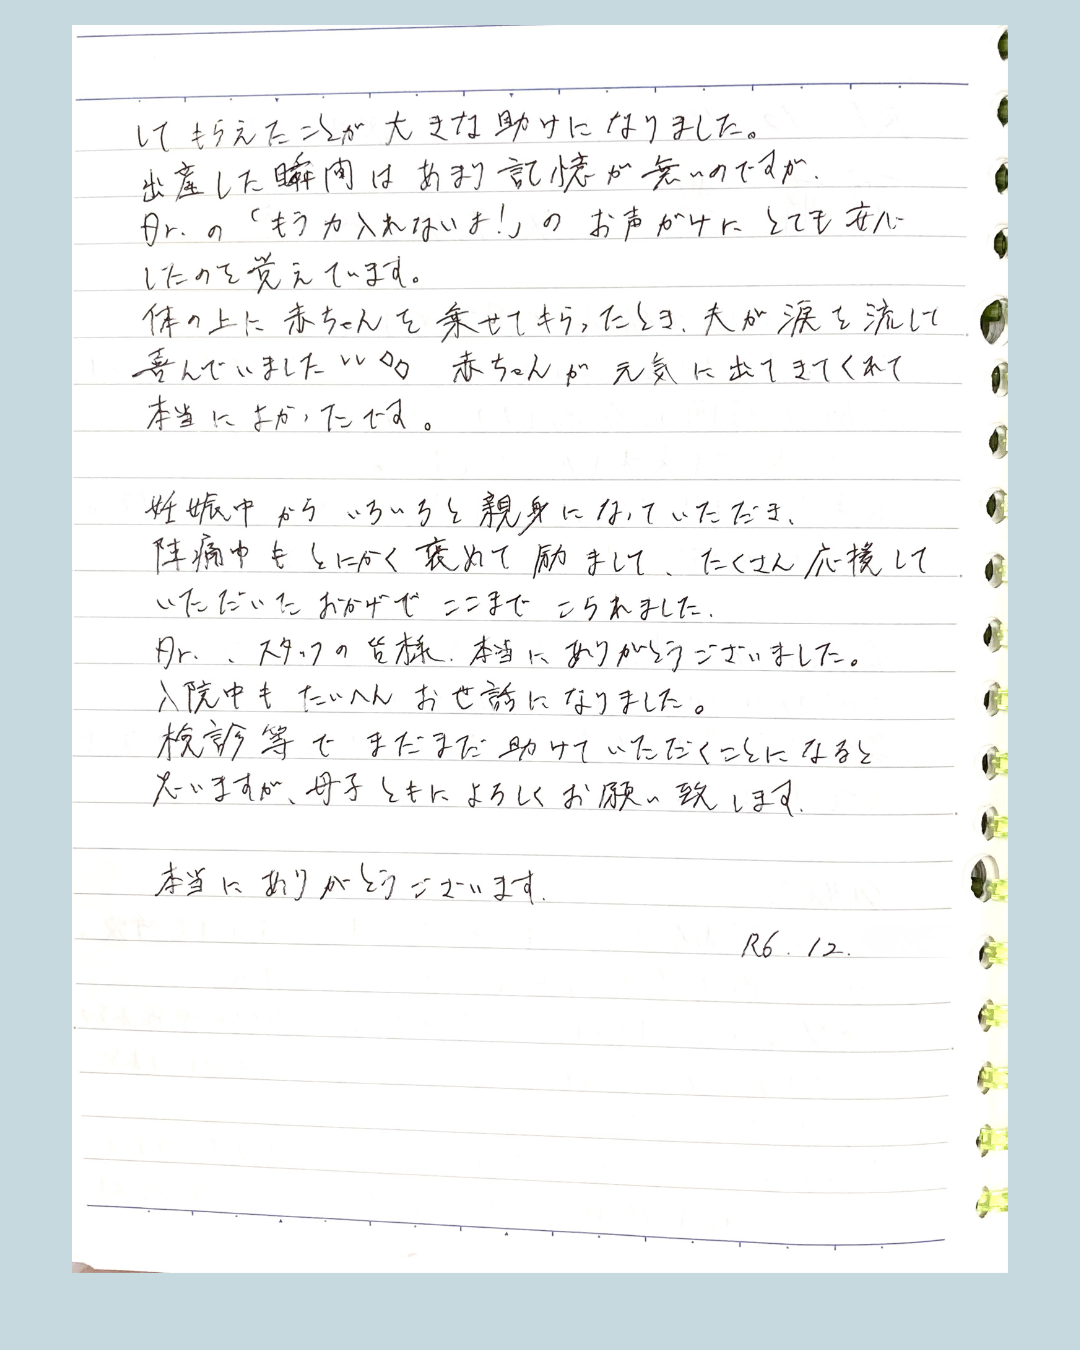 してもらえたことが大きな助けになりました。
出産した瞬間はあまり記憶が無いのですが、
Dr.の「もう力入れないよ！」のお声がけにとても安心
したのを覚えています。
体の上に赤ちゃんを乗せてもらったとき、夫が涙を流して
喜んでいました 赤ちゃんが元気に出てきてくれて
本当によかったです。
妊娠中からいろいろと親身になっていただき、
陣痛中もとにかく褒めて励まして、たくさん応援して
いただいたおかげでここまでこられました。
Dr.、スタッフの皆様、本当にありがとうございました。
入院中もたいへんお世話になりました。
検診等でまだまだ助けていただくことになると
思いますが、母子ともによろしくお願い致します。
本当にありがとうございます。
R6.12.